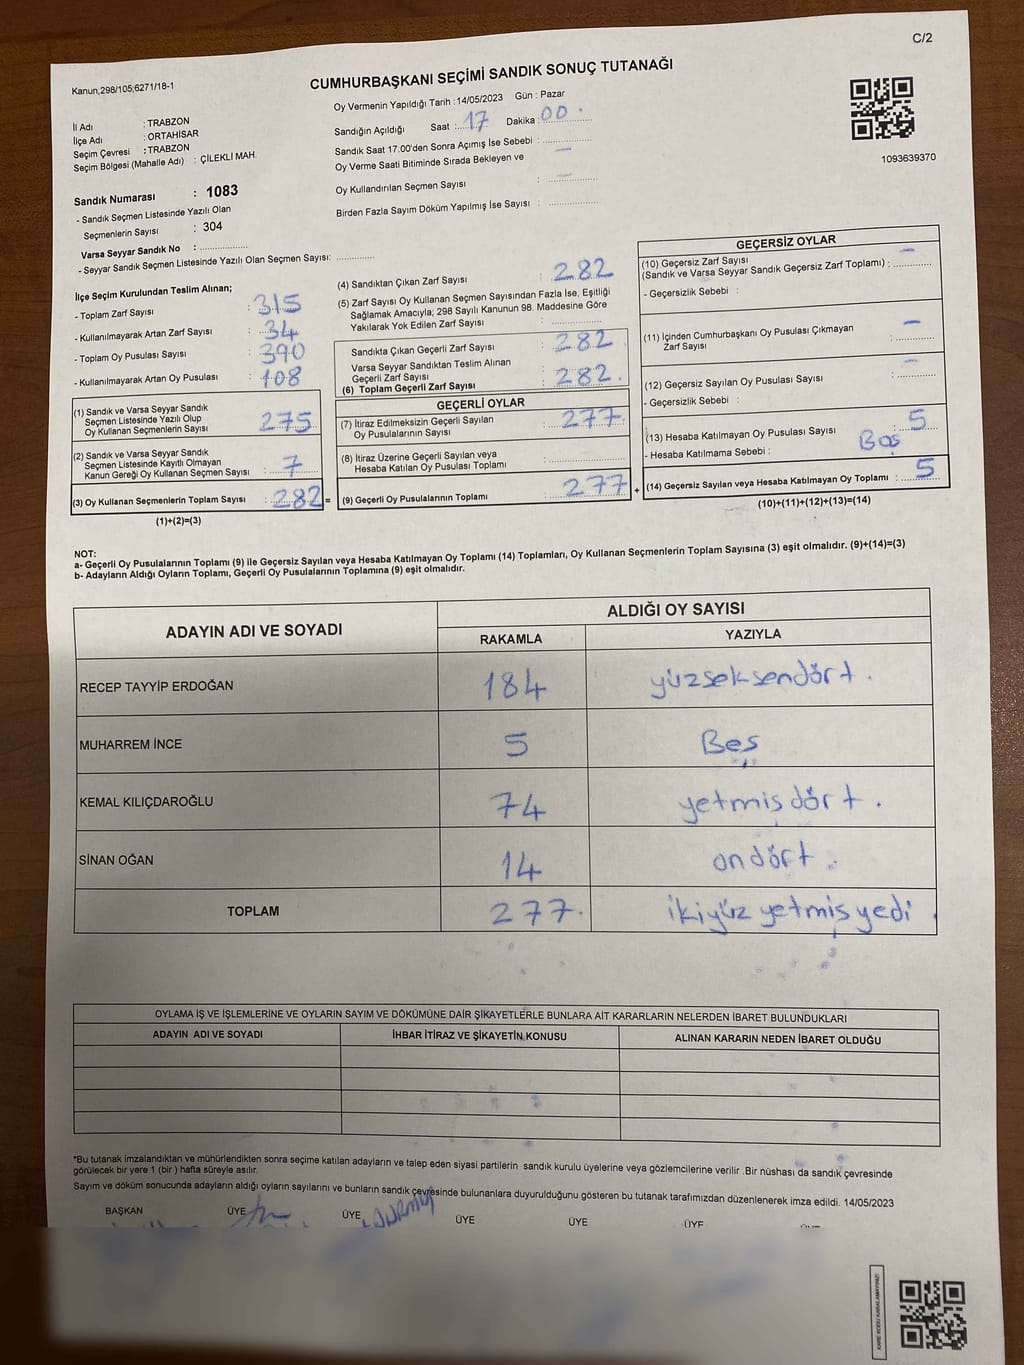 C/2
Kanun;298/105;6271/18-1
CUMHURBAŞKANI SEÇİMİ SANDIK SONUÇ TUTANAĞI
Oy Vermenin Yapıldığı Tarih :14/05/2023 Gün : Pazar
İl Adı : TRABZON
İlçe Adı : ORTAHİSAR
Seçim Çevresi : TRABZON
Seçim Bölgesi (Mahalle Adı) : ÇİLEKLİ MAH.
Sandığın Açıldığı Saat :17 Dakika :00
Sandık Saat 17.00'den Sonra Açımış İse Sebebi : —
Oy Verme Saati Bitiminde Sırada Bekleyen ve
Oy Kullandırılan Seçmen Sayısı : —
Birden Fazla Sayım Döküm Yapılmış İse Sayısı :
1093639370
Sandık Numarası : 1083
- Sandık Seçmen Listesinde Yazılı Olan
Seçmenlerin Sayısı : 304
Varsa Seyyar Sandık No :
- Seyyar Sandık Seçmen Listesinde Yazılı Olan Seçmen Sayısı:
İlçe Seçim Kurulundan Teslim Alınan;
- Toplam Zarf Sayısı : 315
- Kullanılmayarak Artan Zarf Sayısı : 34
- Toplam Oy Pusulası Sayısı : 390
- Kullanılmayarak Artan Oy Pusulası : 108
(1) Sandık ve Varsa Seyyar Sandık
Seçmen Listesinde Yazılı Olup
Oy Kullanan Seçmenlerin Sayısı : 275
(2) Sandık ve Varsa Seyyar Sandık
Seçmen Listesinde Kayıtlı Olmayan
Kanun Gereği Oy Kullanan Seçmen Sayısı : 7
(3) Oy Kullanan Seçmenlerin Toplam Sayısı : 282 =
(1)+(2)=(3)
(4) Sandıktan Çıkan Zarf Sayısı : 282
(5) Zarf Sayısı Oy Kullanan Seçmen Sayısından Fazla İse, Eşitliği
Sağlamak Amacıyla; 298 Sayılı Kanunun 98. Maddesine Göre
Yakılarak Yok Edilen Zarf Sayısı :
Sandıkta Çıkan Geçerli Zarf Sayısı : 282
Varsa Seyyar Sandıktan Teslim Alınan
Geçerli Zarf Sayısı :
(6) Toplam Geçerli Zarf Sayısı : 282.
GEÇERLİ OYLAR
(7) İtiraz Edilmeksizin Geçerli Sayılan
Oy Pusulalarının Sayısı : 277
(8) İtiraz Üzerine Geçerli Sayılan veya
Hesaba Katılan Oy Pusulası Toplamı :
(9) Geçerli Oy Pusulalarının Toplamı : 277 +
GEÇERSİZ OYLAR
(10) Geçersiz Zarf Sayısı
(Sandık ve Varsa Seyyar Sandık Geçersiz Zarf Toplamı) : —
- Geçersizlik Sebebi :
(11) İçinden Cumhurbaşkanı Oy Pusulası Çıkmayan
Zarf Sayısı : —
(12) Geçersiz Sayılan Oy Pusulası Sayısı : —
- Geçersizlik Sebebi :
(13) Hesaba Katılmayan Oy Pusulası Sayısı : 5
- Hesaba Katılmama Sebebi : Boş
(14) Geçersiz Sayılan veya Hesaba Katılmayan Oy Toplamı : 5
(10)+(11)+(12)+(13)=(14)
NOT:
a- Geçerli Oy Pusulalarının Toplamı (9) ile Geçersiz Sayılan veya Hesaba Katılmayan Oy Toplamı (14) Toplamları, Oy Kullanan Seçmenlerin Toplam Sayısına (3) eşit olmalıdır. (9)+(14)=(3)
b- Adayların Aldığı Oyların Toplamı, Geçerli Oy Pusulalarının Toplamına (9) eşit olmalıdır.
ADAYIN ADI VE SOYADI ALDIĞI OY SAYISI
RAKAMLA YAZIYLA
RECEP TAYYİP ERDOĞAN 184 yüzseksendört.
MUHARREM İNCE 5 Beş
KEMAL KILIÇDAROĞLU 74 yetmişdört.
SİNAN OĞAN 14 ondört.
TOPLAM 277. ikiyüz yetmiş yedi.
OYLAMA İŞ VE İŞLEMLERİNE VE OYLARIN SAYIM VE DÖKÜMÜNE DAİR ŞİKAYETLERLE BUNLARA AİT KARARLARIN NELERDEN İBARET BULUNDUKLARI
ADAYIN ADI VE SOYADI İHBAR İTİRAZ VE ŞİKAYETİN KONUSU ALINAN KARARIN NEDEN İBARET OLDUĞU
"Bu tutanak imzalandıktan ve mühürlendikten sonra seçime katılan adayların ve talep eden siyasi partilerin sandık kurulu üyelerine veya gözlemcilerine verilir .Bir nüshası da sandık çevresinde
görülecek bir yere 1 (bir ) hafta süreyle asılır.
Sayım ve döküm sonucunda adayların aldığı oyların sayılarını ve bunların sandık çevresinde bulunanlara duyurulduğunu gösteren bu tutanak tarafımızdan düzenlenerek imza edildi. 14/05/2023
BAŞKAN ÜYE ÜYE ÜYE ÜYE ÜYE